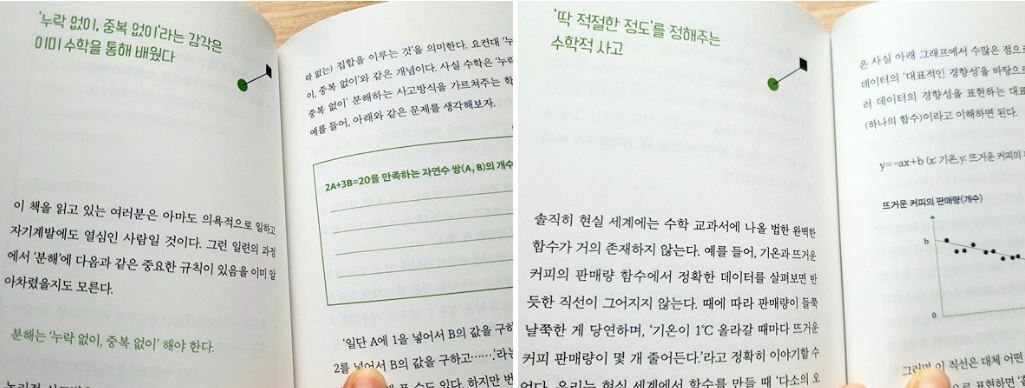 '누락 없이, 중복 없이'라는 감각은
이미 수학을 통해 배웠다
이 책을 읽고 있는 여러분은 아마도 의욕적으로 일하고
자기계발에도 열심인 사람일 것이다. 그런 일련의 과정
에서 '분해'에 다음과 같은 중요한 규칙이 있음을 이미 알
아차렸을지도 모른다.
분해는 '누락 없이, 중복 없이' 해야 한다.
락 없는) 집합을 이루는 것'을 의미한다. 요컨대 '누
이, 중복 없이'와 같은 개념이다. 사실 수학은 '누락
중복 없이' 분해하는 사고방식을 가르쳐주는 학
예를 들어, 아래와 같은 문제를 생각해보자.
2A+3B=20을 만족하는 자연수 쌍(A, B)의 개수
'일단 A에 1을 넣어서 B의 값을 구하
2를 넣어서 B의 값을 구하고……'라는
수도 있다. 하지만
'딱 적절한 정도'를 정해주는
수학적 사고
솔직히 현실 세계에는 수학 교과서에 나올 법한 완벽한
함수가 거의 존재하지 않는다. 예를 들어, 기온과 뜨거운
커피의 판매량 함수에서 정확한 데이터를 살펴보면 반
듯한 직선이 그어지지 않는다. 때에 따라 판매량이 들쭉
날쭉한 게 당연하며, '기온이 1℃ 올라갈 때마다 뜨거운
커피 판매량이 몇 개 줄어든다.'라고 정확히 이야기할 수
없다. 우리는 현실 세계에서 함수를 만들 때 '다소의 오
은 사실 아래 그래프에서 수많은 점으로
데이터의 '대표적인 경향성'을 바탕으로
러 데이터의 경향성을 표현하는 대표
(하나의 함수)이라고 이해하면 된다.
y=-ax+b (x: 기온, y: 뜨거운 커피의
뜨거운 커피의 판매량(개수)
b
0
그러면 이 직선은 대체 어떤
으로 표현하면